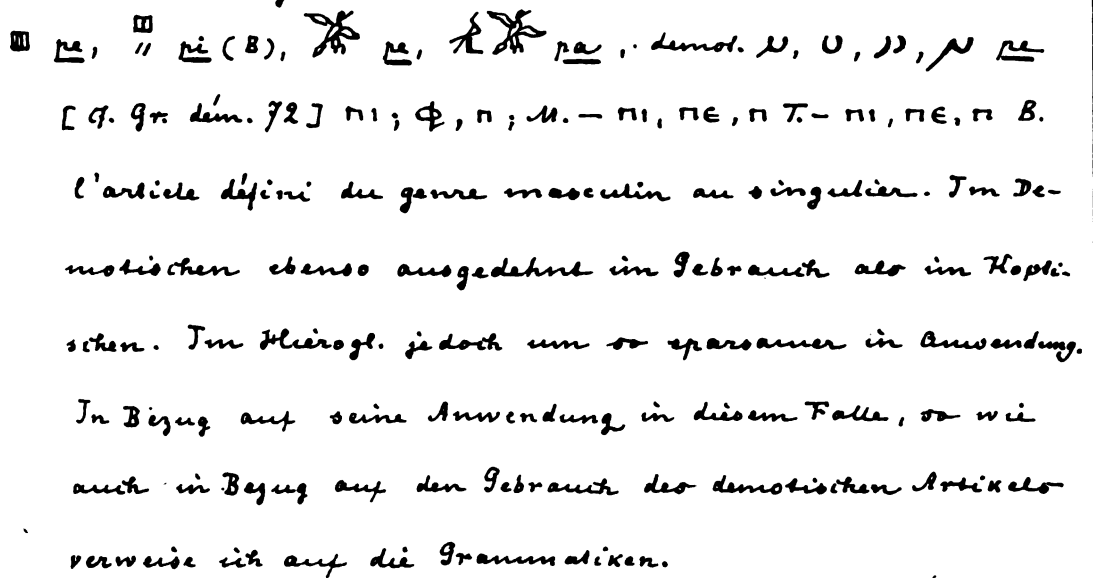 𓊪 pe, 𓊪 𓏭 pi (B), 𓅮 pe, 𓅯 pa, demot. pe
[cf. Gr. dém. 72] ⲡⲓ; ⲫ, ⲡ; M. – ⲡⲓ, ⲡⲉ, ⲡ T. – ⲡⲓ, ⲡⲉ, ⲡ B.
l'article défini du genre masculin au singulier. Im De-
motischen ebenso ausgedehnt im Gebrauch als im Kopti-
schen. Im Hierogl. jedoch um so sparsamer in Anwendung.
In Bezug auf seine Anwendung in diesem Falle, so wie
auch in Bezug auf den Gebrauch des demotischen Artikels
verweise ich auf die Grammatiken.